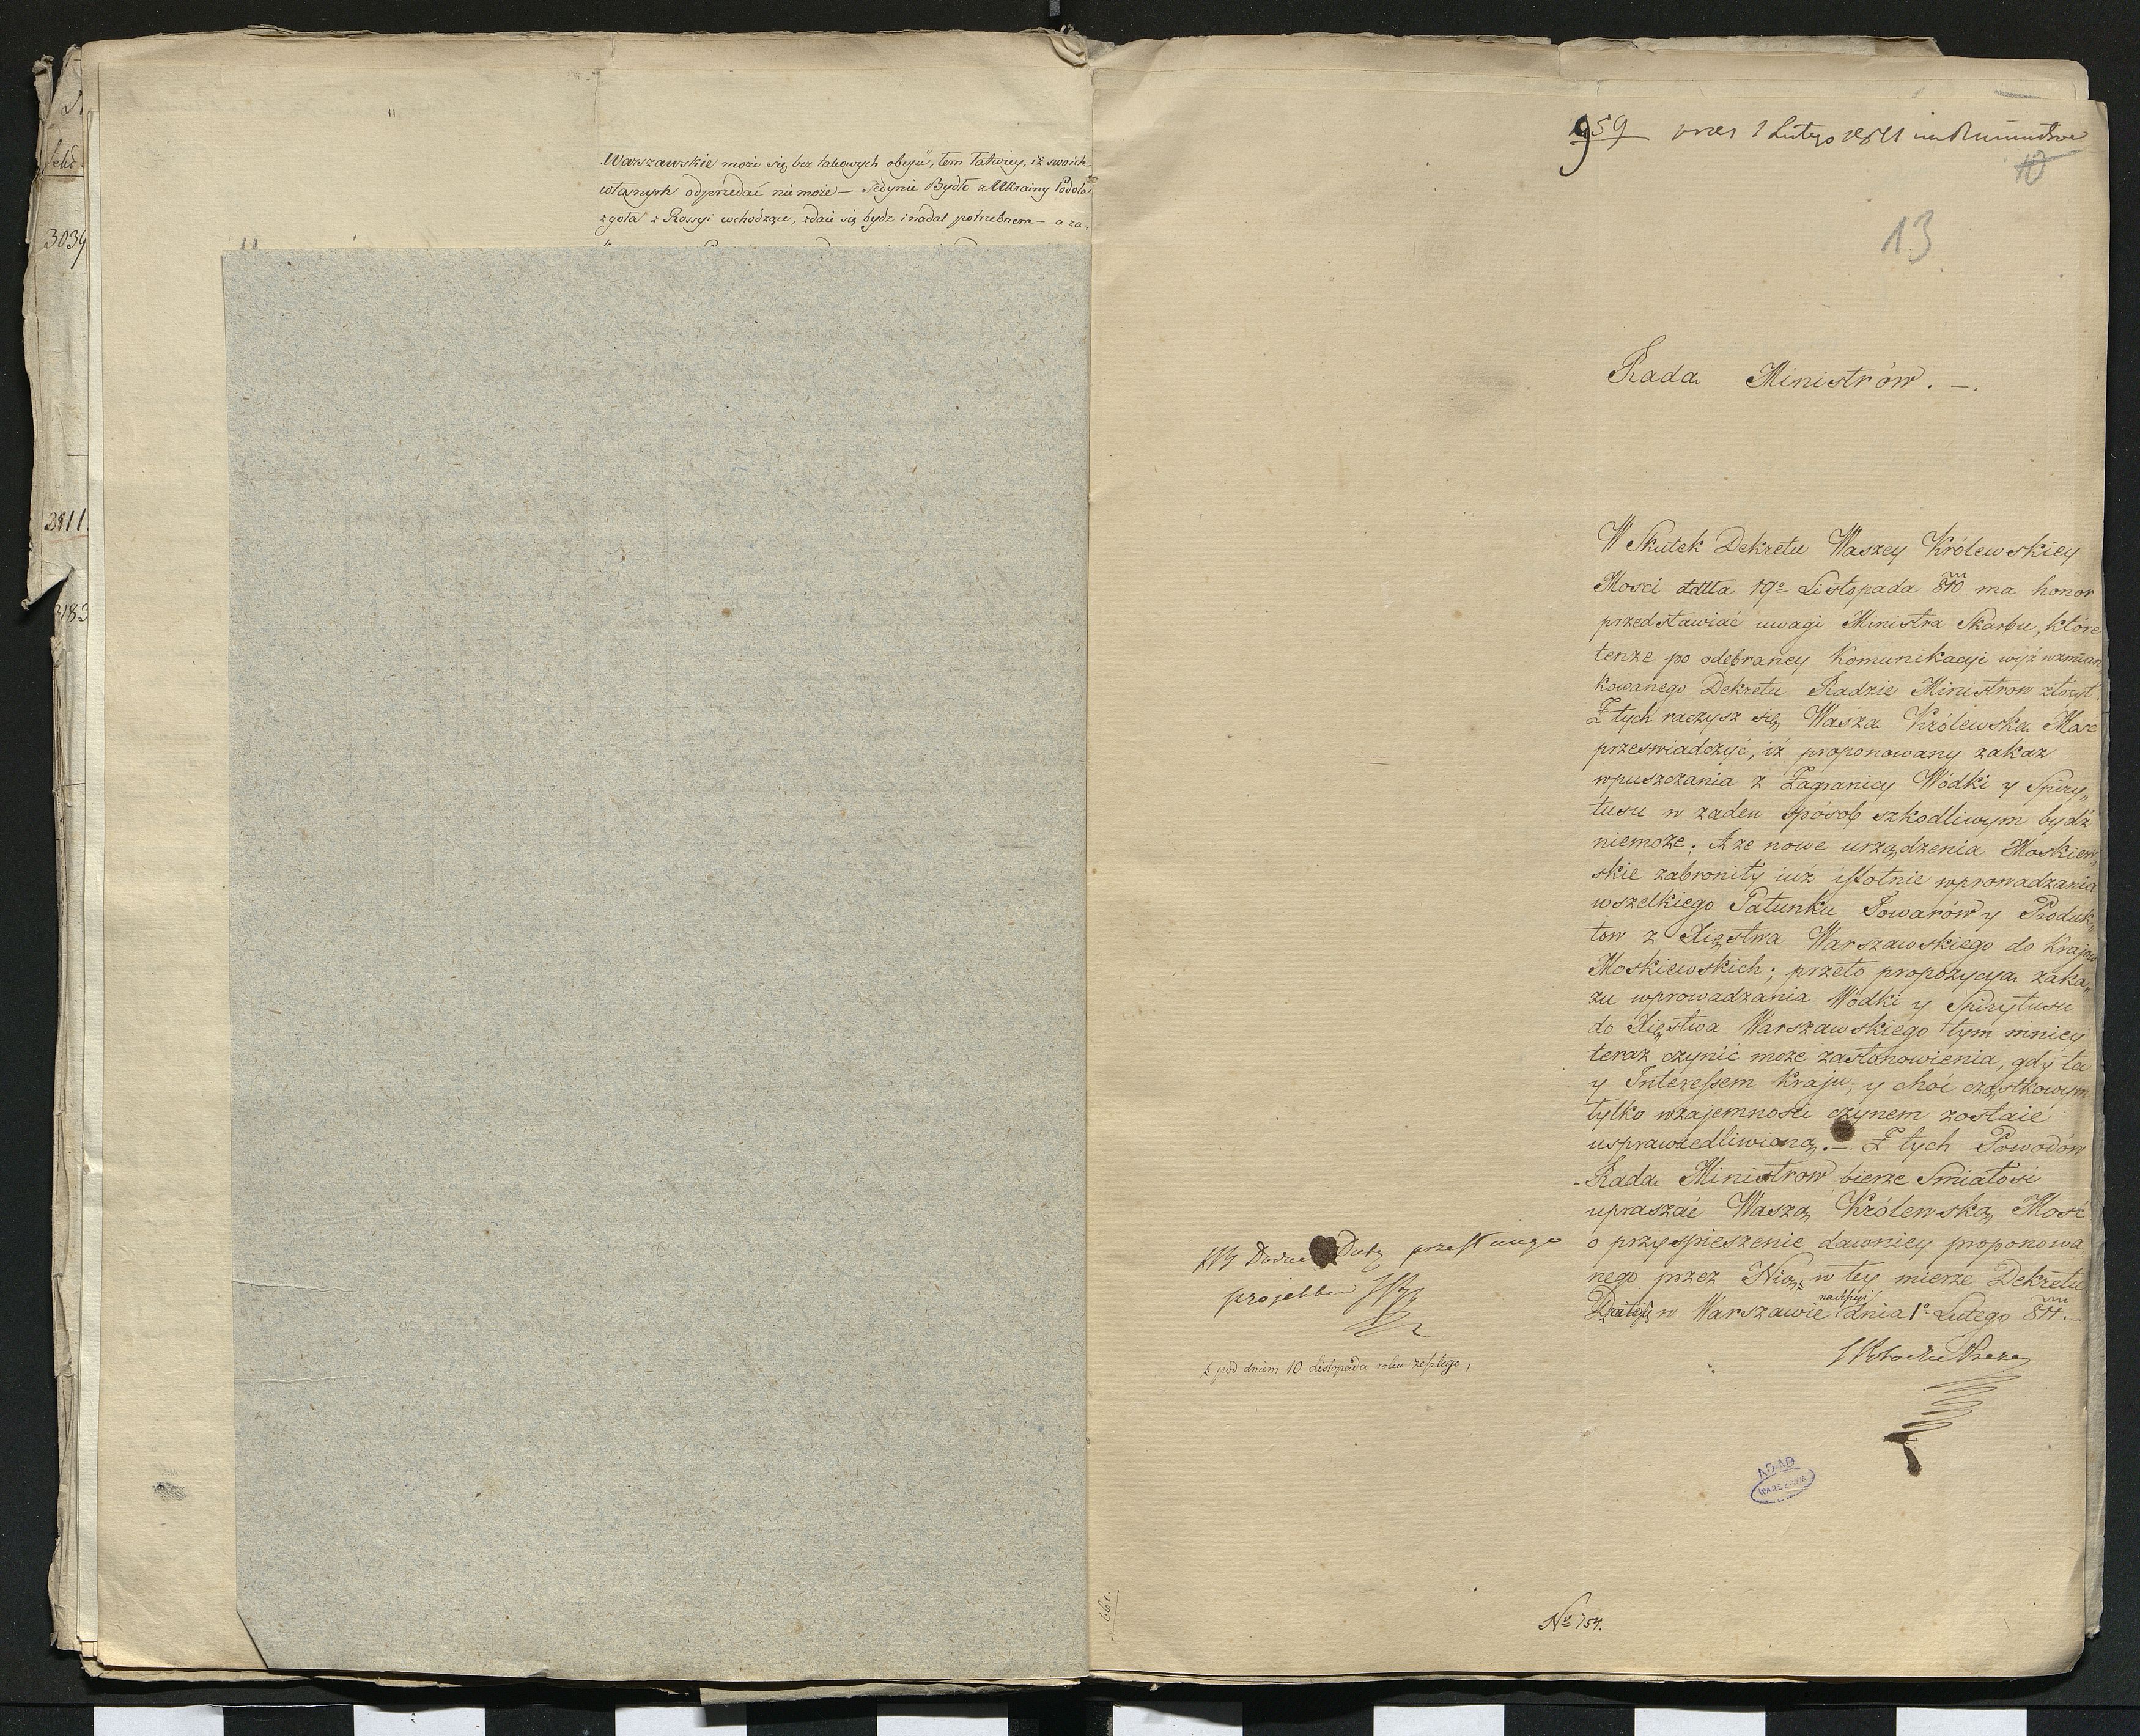 Warszawskie może się bez takowych obeyść, tem łatwiey, iż swoich
własnych odprzedać nie może — Jedynie Bydło z Ukrainy Podola
zgoła z Rossyi wchodzące, zdaie się bydz i nadal potrzebnem — a za-
3034
2911.
183
959 1 Lutego 1811
10
13
Rada Ministrów. —.
W Skutek Dekretu Waszey Królewskiey
Mosci ddtta 19º Listopada 810 ma honor
przedstawiać uwagi Ministra Skarbu, które
tenże po odebraney Komunikacyi wyż wzmian
kowanego Dekretu Radzie Ministrow złożył.
Z tych raczysz się Wasza Królewska Mość
przeswiadczyć, iż proponowany zakaz
wpuszczania z Zagranicy Wódki y Spiry„
tusu w zaden sposob szkodliwym bydź
niemoże; A że nowe urządzenia Moskiew„
skie zabroniły iuż istotnie wprowadzania
wszelkiego Gatunku Towarów y Produk„
tow z Xięstwa Warszawskiego do Krajow
Moskiewskich; przeto propozycya zaka„
zu wprowadzania Wódki y Spirytusu
do Xięstwa Warszawskiego tym mniey
teraz czynić może zastanowienia, gdy ta
y Interessem Kraju, y choć cząstkowym
tylko wzajemności czynem zostaie
usprawiedliwioną. —. Z tych Powodów
Rada Ministrow bierze Smiałość
upraszać Waszą Królewską Mość
o przyspieszenie dawniey proponowa
nego przez Nią, w tey mierze Dekretu
w Warszawie dnia 1º Lutego 811. —
projektu
pod dniem 10 Listopada roku zeszłego,
AGAD
WARSZAWA
661.
Nº 154.